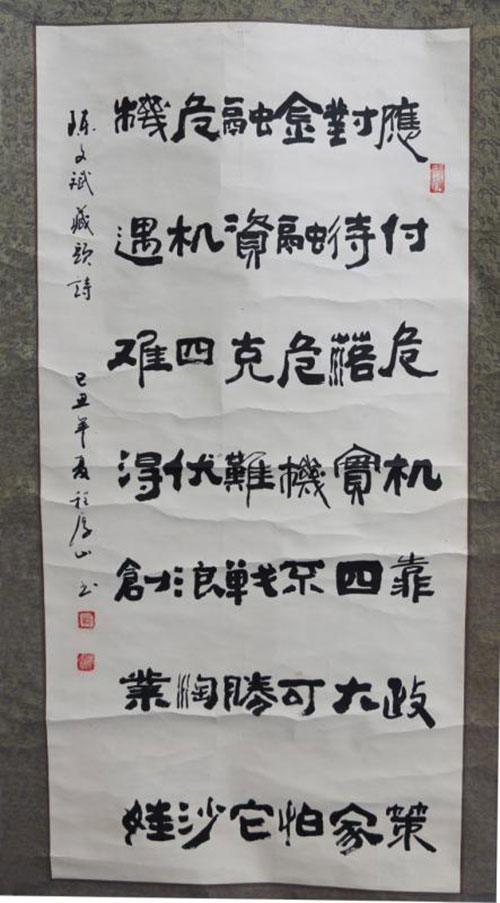 應付危机靠政策
對待落實四大家
金融危機不可怕
融資克難戰勝它
危机四伏浪淘沙
機遇难得創業娃
陈文斌藏頭詩
己丑年夏 山书